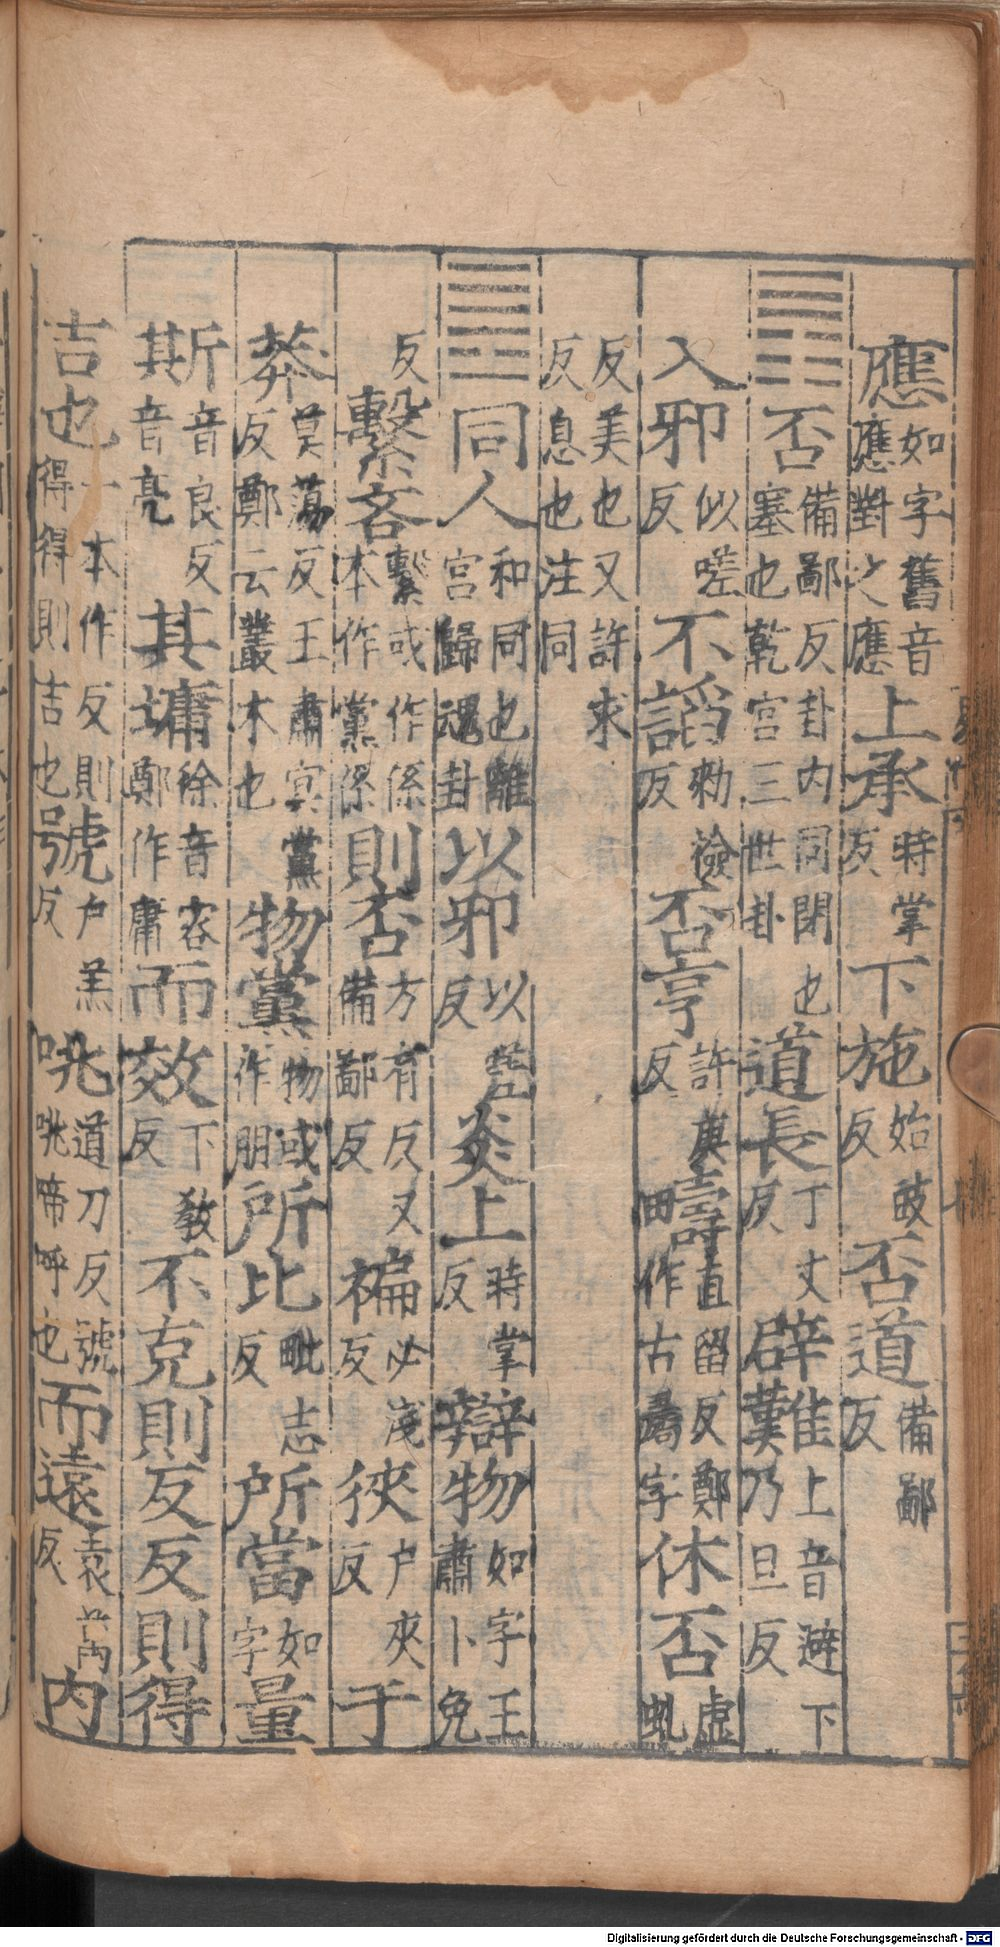 應如字舊音應對之應上承時掌反下施始豉反否道備鄙反
䷋否備鄙反卦內同閉也塞也乾宮三世卦道長丁丈反辟難上音避下乃旦反
入邪似嗟反不諂勑檢反否亨許庚反疇直留反鄭作古𠷎字休否虛虬
反美也又許求反息也注同
䷌同人和同也離宮歸魂卦以邪以嗟反炎上時掌反辯物如字王肅卜免
反繫吝繫或作係本作黨係則否方有反又備鄙反褊必淺反狹戶夾反于
莽莫蕩反王肅冥黨反鄭云叢木也物黨物或作朋所比毗志反所當如字量
斯音良反其音亮其墉徐音容鄭作庸而效下教反不克則反反則得
吉也一本作反則得得則吉也號戶羔反咷道刀反號咷啼呼也而遠袁萬反內
Digitalisierung gefördert durch die Deutsche Forschungsgemeinschaft - DFG